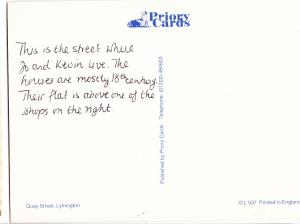 Priory
Cards
This is the street where
Jo and Kevin live. The
houses are mostly 18th century.
Their flat is above one of the
shops on the right.
Published by Priory Cards Telephone (01202) 484603
Quay Street, Lymington
© L 037 Printed in England